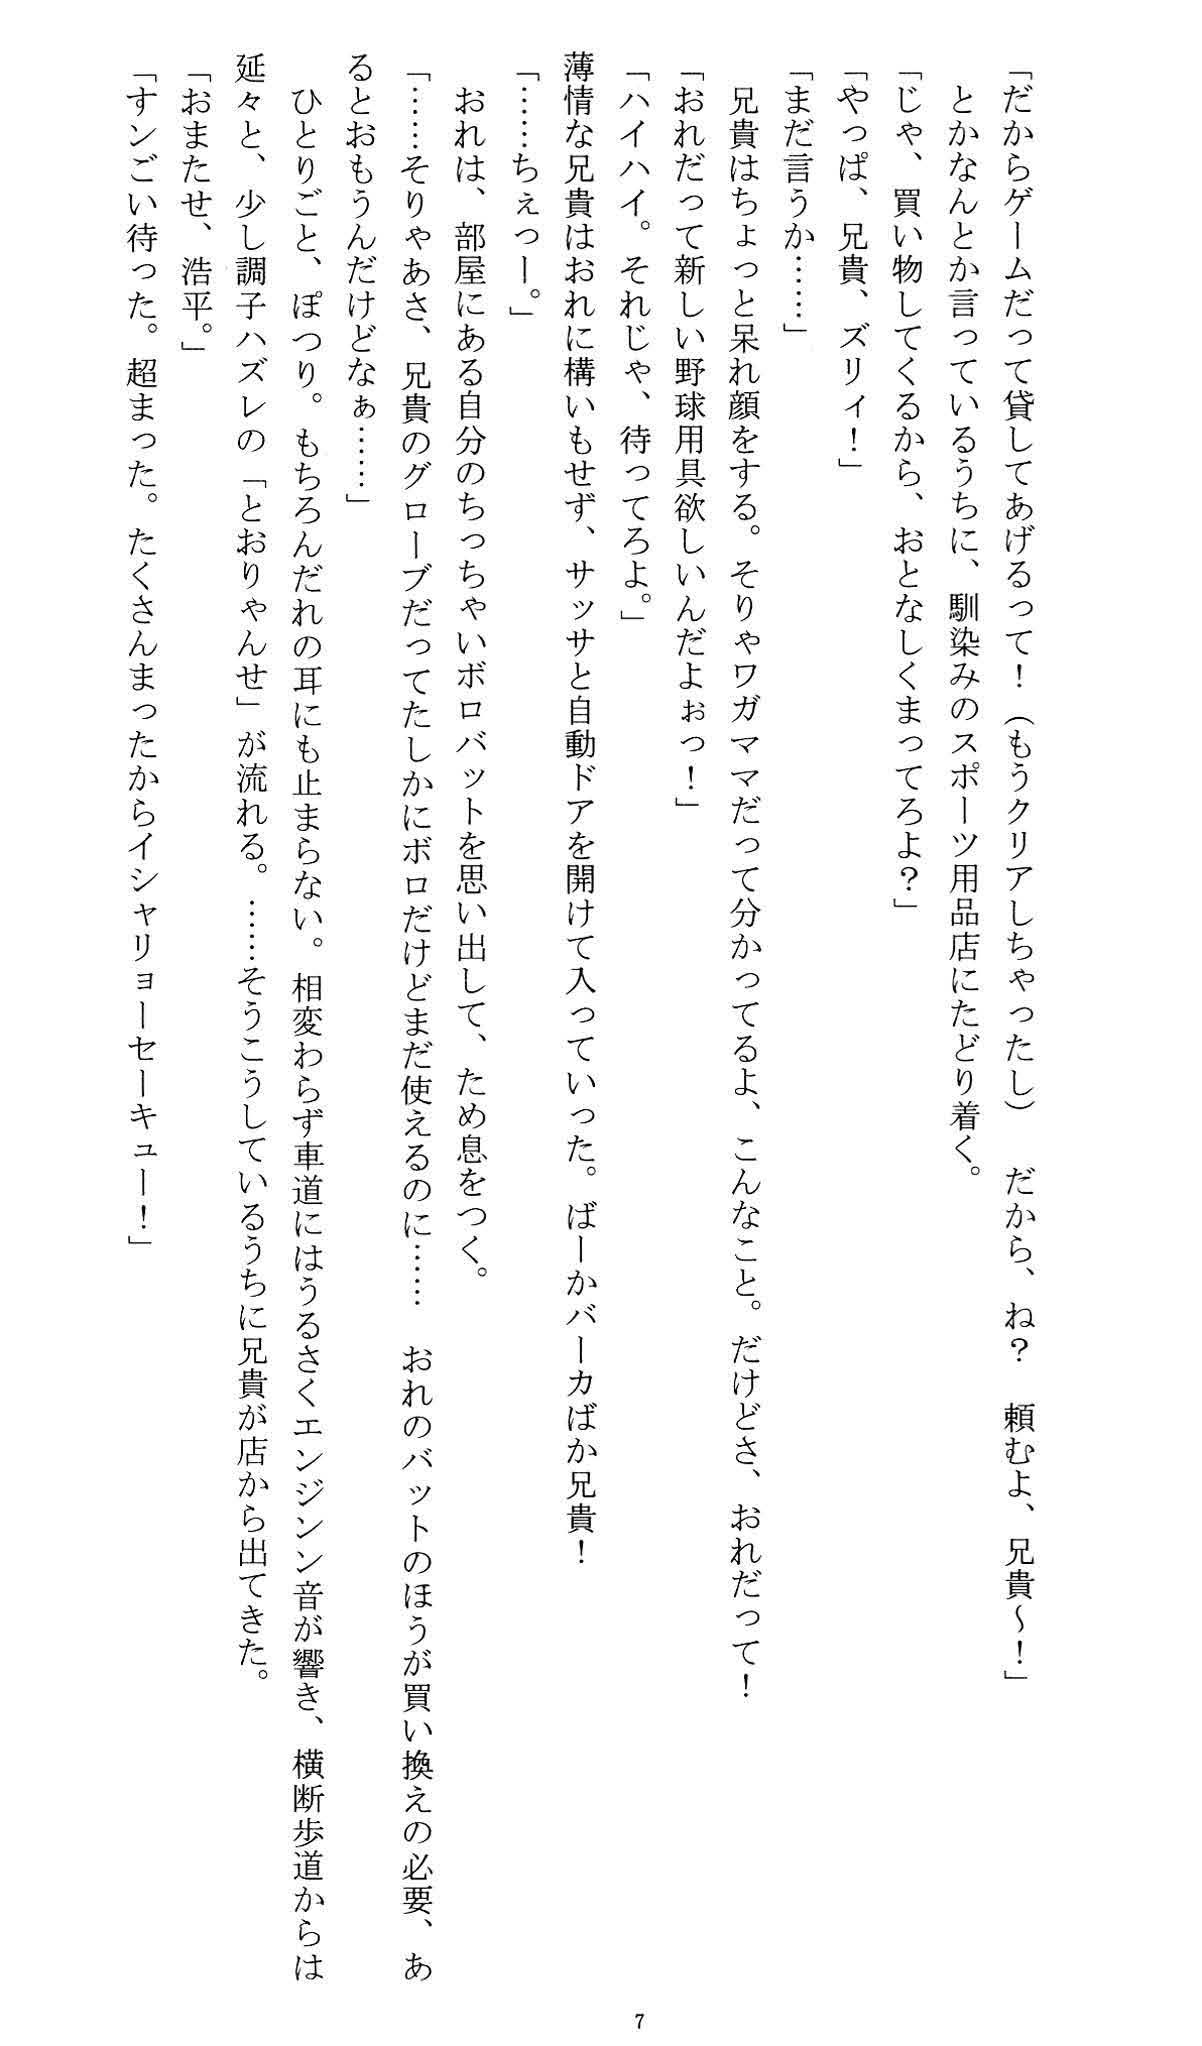 「だからゲームだって貸してあげるって！（もうクリアしちゃったし）　だから、ね？　頼むよ、兄貴～！」
　とかなんとか言っているうちに、馴染みのスポーツ用品店にたどり着く。
「じゃ、買い物してくるから、おとなしくまってろよ？」
「やっぱ、兄貴、ズリィ！」
「まだ言うか……」
　兄貴はちょっと呆れ顔をする。そりゃワガママだって分かってるよ、こんなこと。だけどさ、おれだって！
「おれだって新しい野球用具欲しいんだよぉっ！」
「ハイハイ。それじゃ、待ってろよ。」
薄情な兄貴はおれに構いもせず、サッサと自動ドアを開けて入っていった。ばーかバーカばか兄貴！
「……ちぇっー。」
　おれは、部屋にある自分のちっちゃいボロバットを思い出して、ため息をつく。
「……そりゃあさ、兄貴のグローブだってたしかにボロだけどまだ使えるのに……　おれのバットのほうが買い換えの必要、あ
るとおもうんだけどなぁ……」
　ひとりごと、ぽつり。もちろんだれの耳にも止まらない。相変わらず車道にはうるさくエンジンン音が響き、横断歩道からは
延々と、少し調子ハズレの「とおりゃんせ」が流れる。……そうこうしているうちに兄貴が店から出てきた。
「おまたせ、浩平。」
「すンごい待った。超まった。たくさんまったからイシャリョーセーキュー！」
7